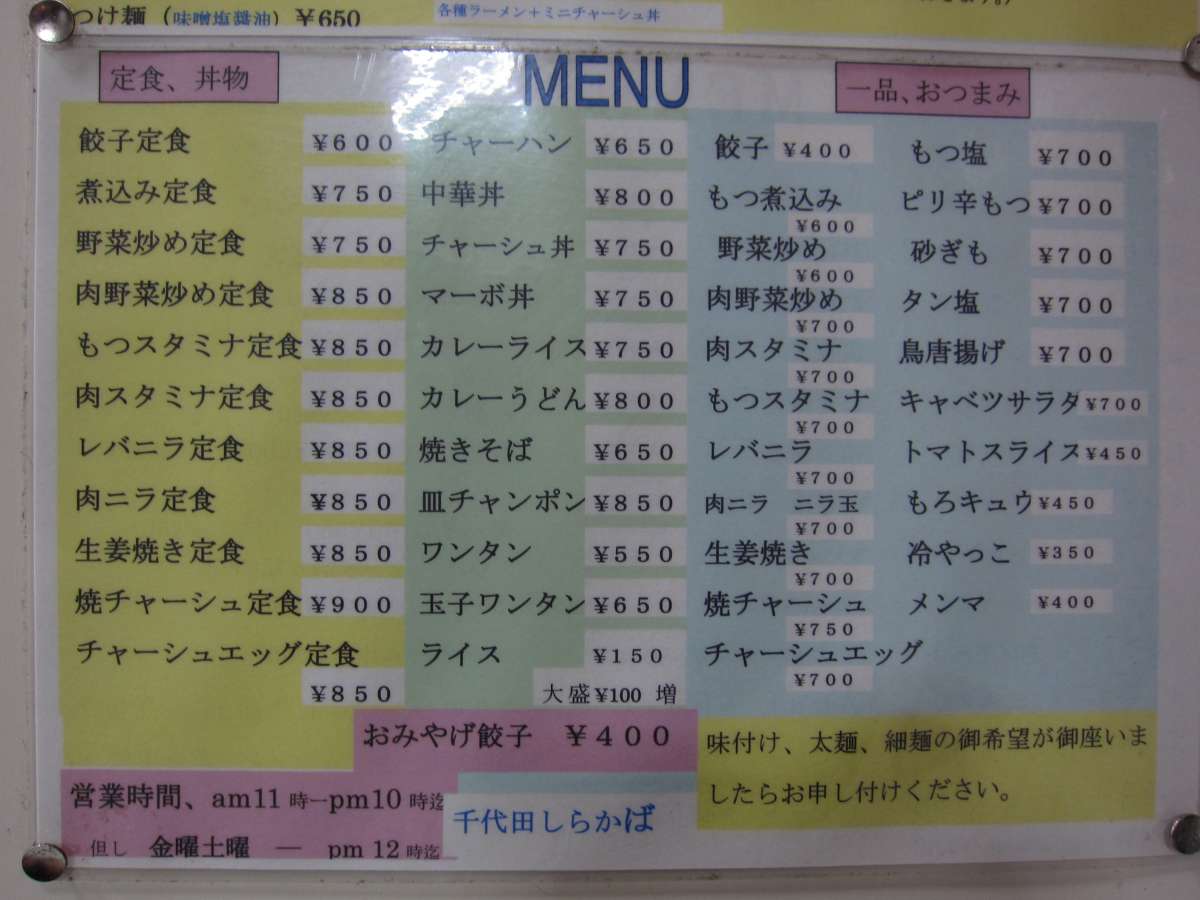 つけ麺（味噌塩醤油）￥650
各種ラーメン＋ミニチャーシュ丼
定食、丼物
MENU
一品、おつまみ
餃子定食 ¥600
煮込み定食 ¥750
野菜炒め定食 ¥750
肉野菜炒め定食 ¥850
もつスタミナ定食 ¥850
肉スタミナ定食 ¥850
レバニラ定食 ¥850
肉ニラ定食 ¥850
生姜焼き定食 ¥850
焼チャーシュ定食 ¥900
チャーシュエッグ定食
¥850
チャーハン ¥650
中華丼 ¥800
チャーシュ丼 ¥750
マーボ丼 ¥750
カレーライス ¥750
カレーうどん ¥800
焼きそば ¥650
皿チャンポン ¥850
ワンタン ¥550
玉子ワンタン ¥650
ライス ¥150
大盛¥100 増
餃子 ¥400
もつ煮込み
¥600
野菜炒め
¥600
肉野菜炒め
¥700
肉スタミナ
¥700
もつスタミナ
¥700
レバニラ
¥700
肉ニラ ニラ玉
¥700
生姜焼き
¥700
焼チャーシュ
¥750
チャーシュエッグ
¥700
もつ塩 ¥700
ピリ辛もつ ¥700
砂ぎも ¥700
タン塩 ¥700
鳥唐揚げ ¥700
キャベツサラダ ¥700
トマトスライス ¥450
もろキュウ ¥450
冷やっこ ¥350
メンマ ¥400
おみやげ餃子 ￥400
味付け、太麺、細麺の御希望が御座いま
したらお申し付けください。
営業時間、am11時—pm10時迄
但し 金曜土曜 — pm 12時迄
千代田しらかば